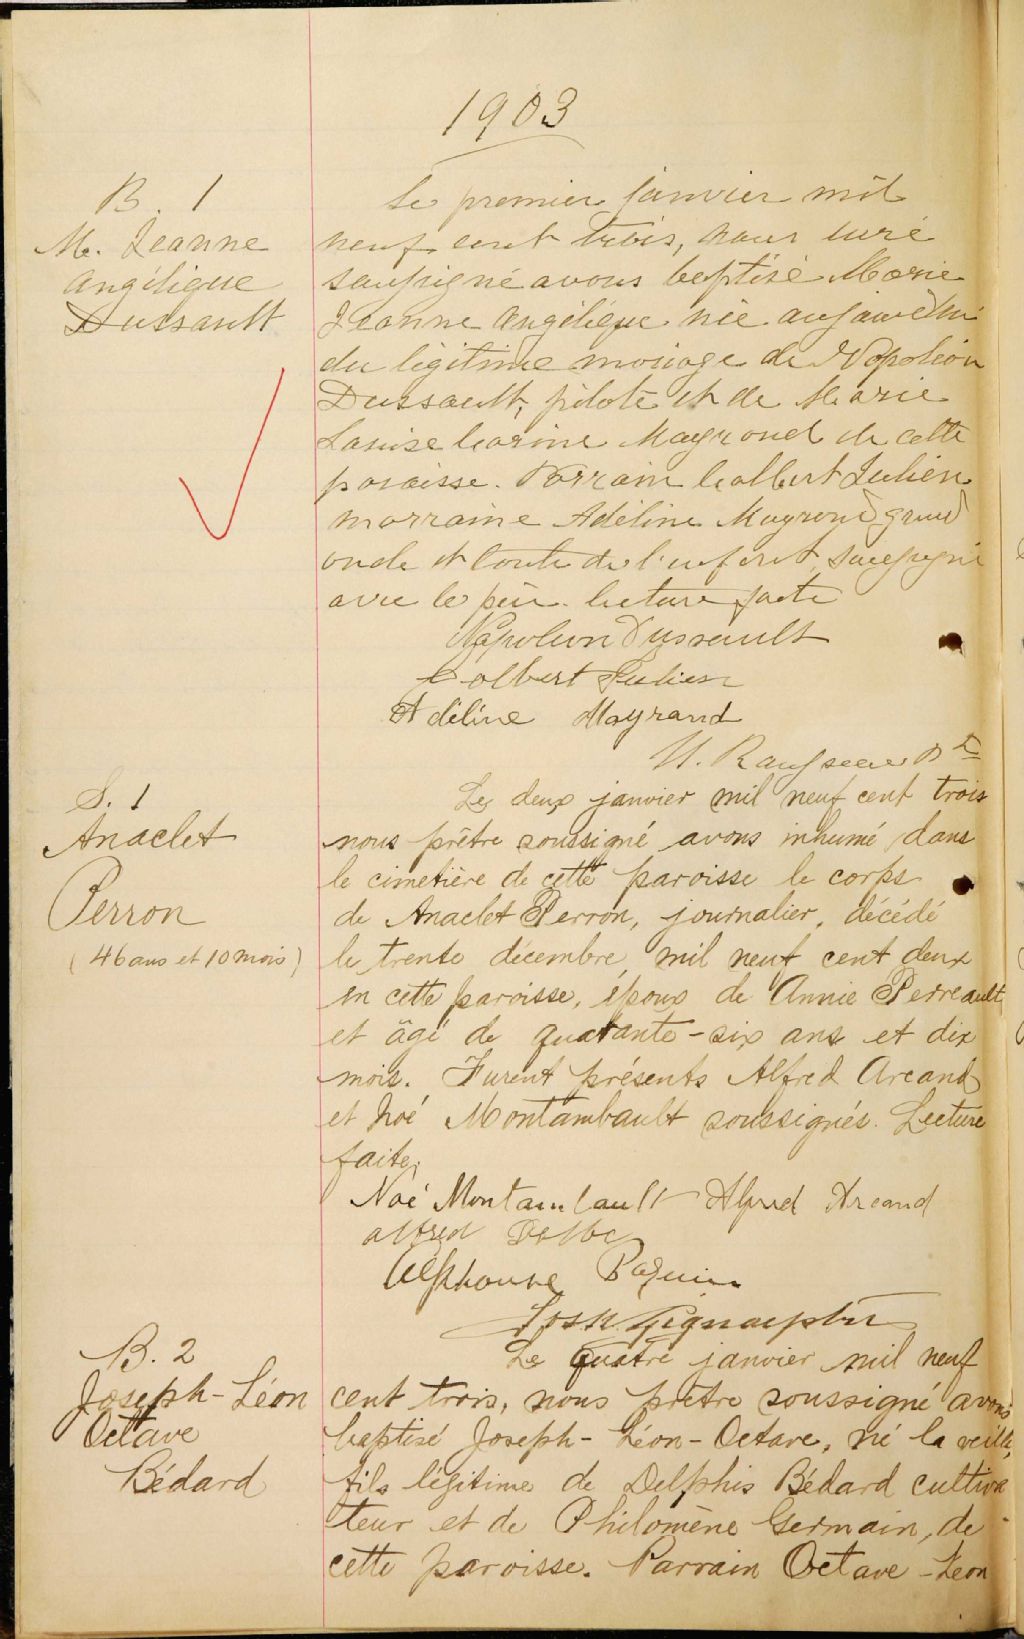 1903
B. 1
M. Jeanne
Angélique
Dussault
Le premier janvier mil
neuf cent trois, nous curé
soussigné avons baptisé Marie
Jeanne Angélique née aujourd'hui
du légitime mariage de Napoléon
Dussault, pilote et de Marie
Louise Corine Mayrand de cette
paroisse. Parrain Colbert Julien
marraine Adéline Mayrand grand
oncle et tante de l'enfant soussigné
avec le père. lecture faite
Napoleon Dussault
Colbert Julien
Adéline Mayrand
U. Rousseau Ptre
S. 1
Anaclet
Perron
(46 ans et 10 mois)
Le deux janvier mil neuf cent trois
nous prêtre soussigné avons inhumé dans
le cimetière de cette paroisse le corps
de Anaclet Perron, journalier, décédé
le trente décembre mil neuf cent deux
en cette paroisse, époux de Annie Perreault
et âgé de quarante-six ans et dix
mois. Furent présents Alfred Arcand
et Noé Montambault soussignés. Lecture
faite.
Noé Montambault Alfred Arcand
Alfred
Alphonse Paquin
B. 2
Joseph-Léon
Octave
Bédard
Le quatre janvier mil neuf
cent trois, nous prêtre soussigné avons
baptisé Joseph-Léon-Octave, né la veille,
fils légitime de Delphis Bédard cultiva
teur et de Philomène Germain, de
cette paroisse. Parrain Octave-Léon